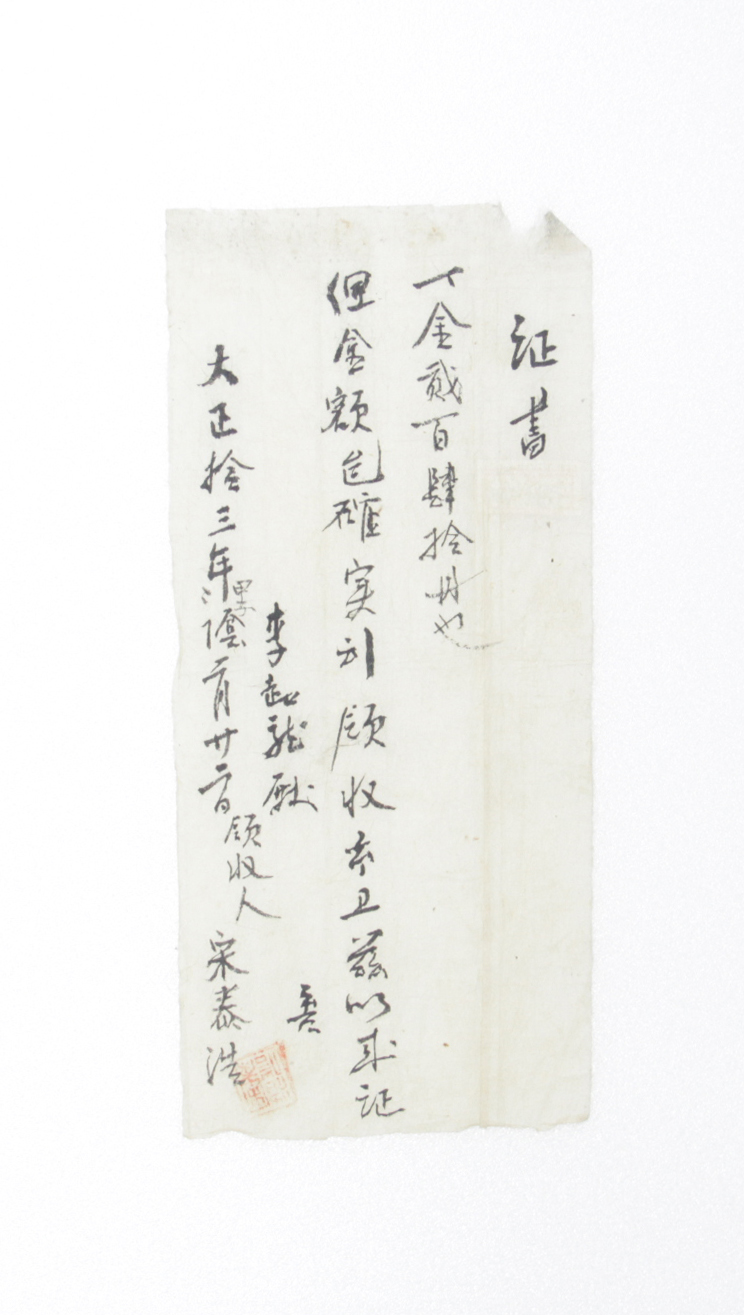 证書
一金貳百肆拾円也
但金額을確実히領收하고玆以成证
李起龍殿
大正拾三年甲子陰二月廿二日
領收人
宋泰浩